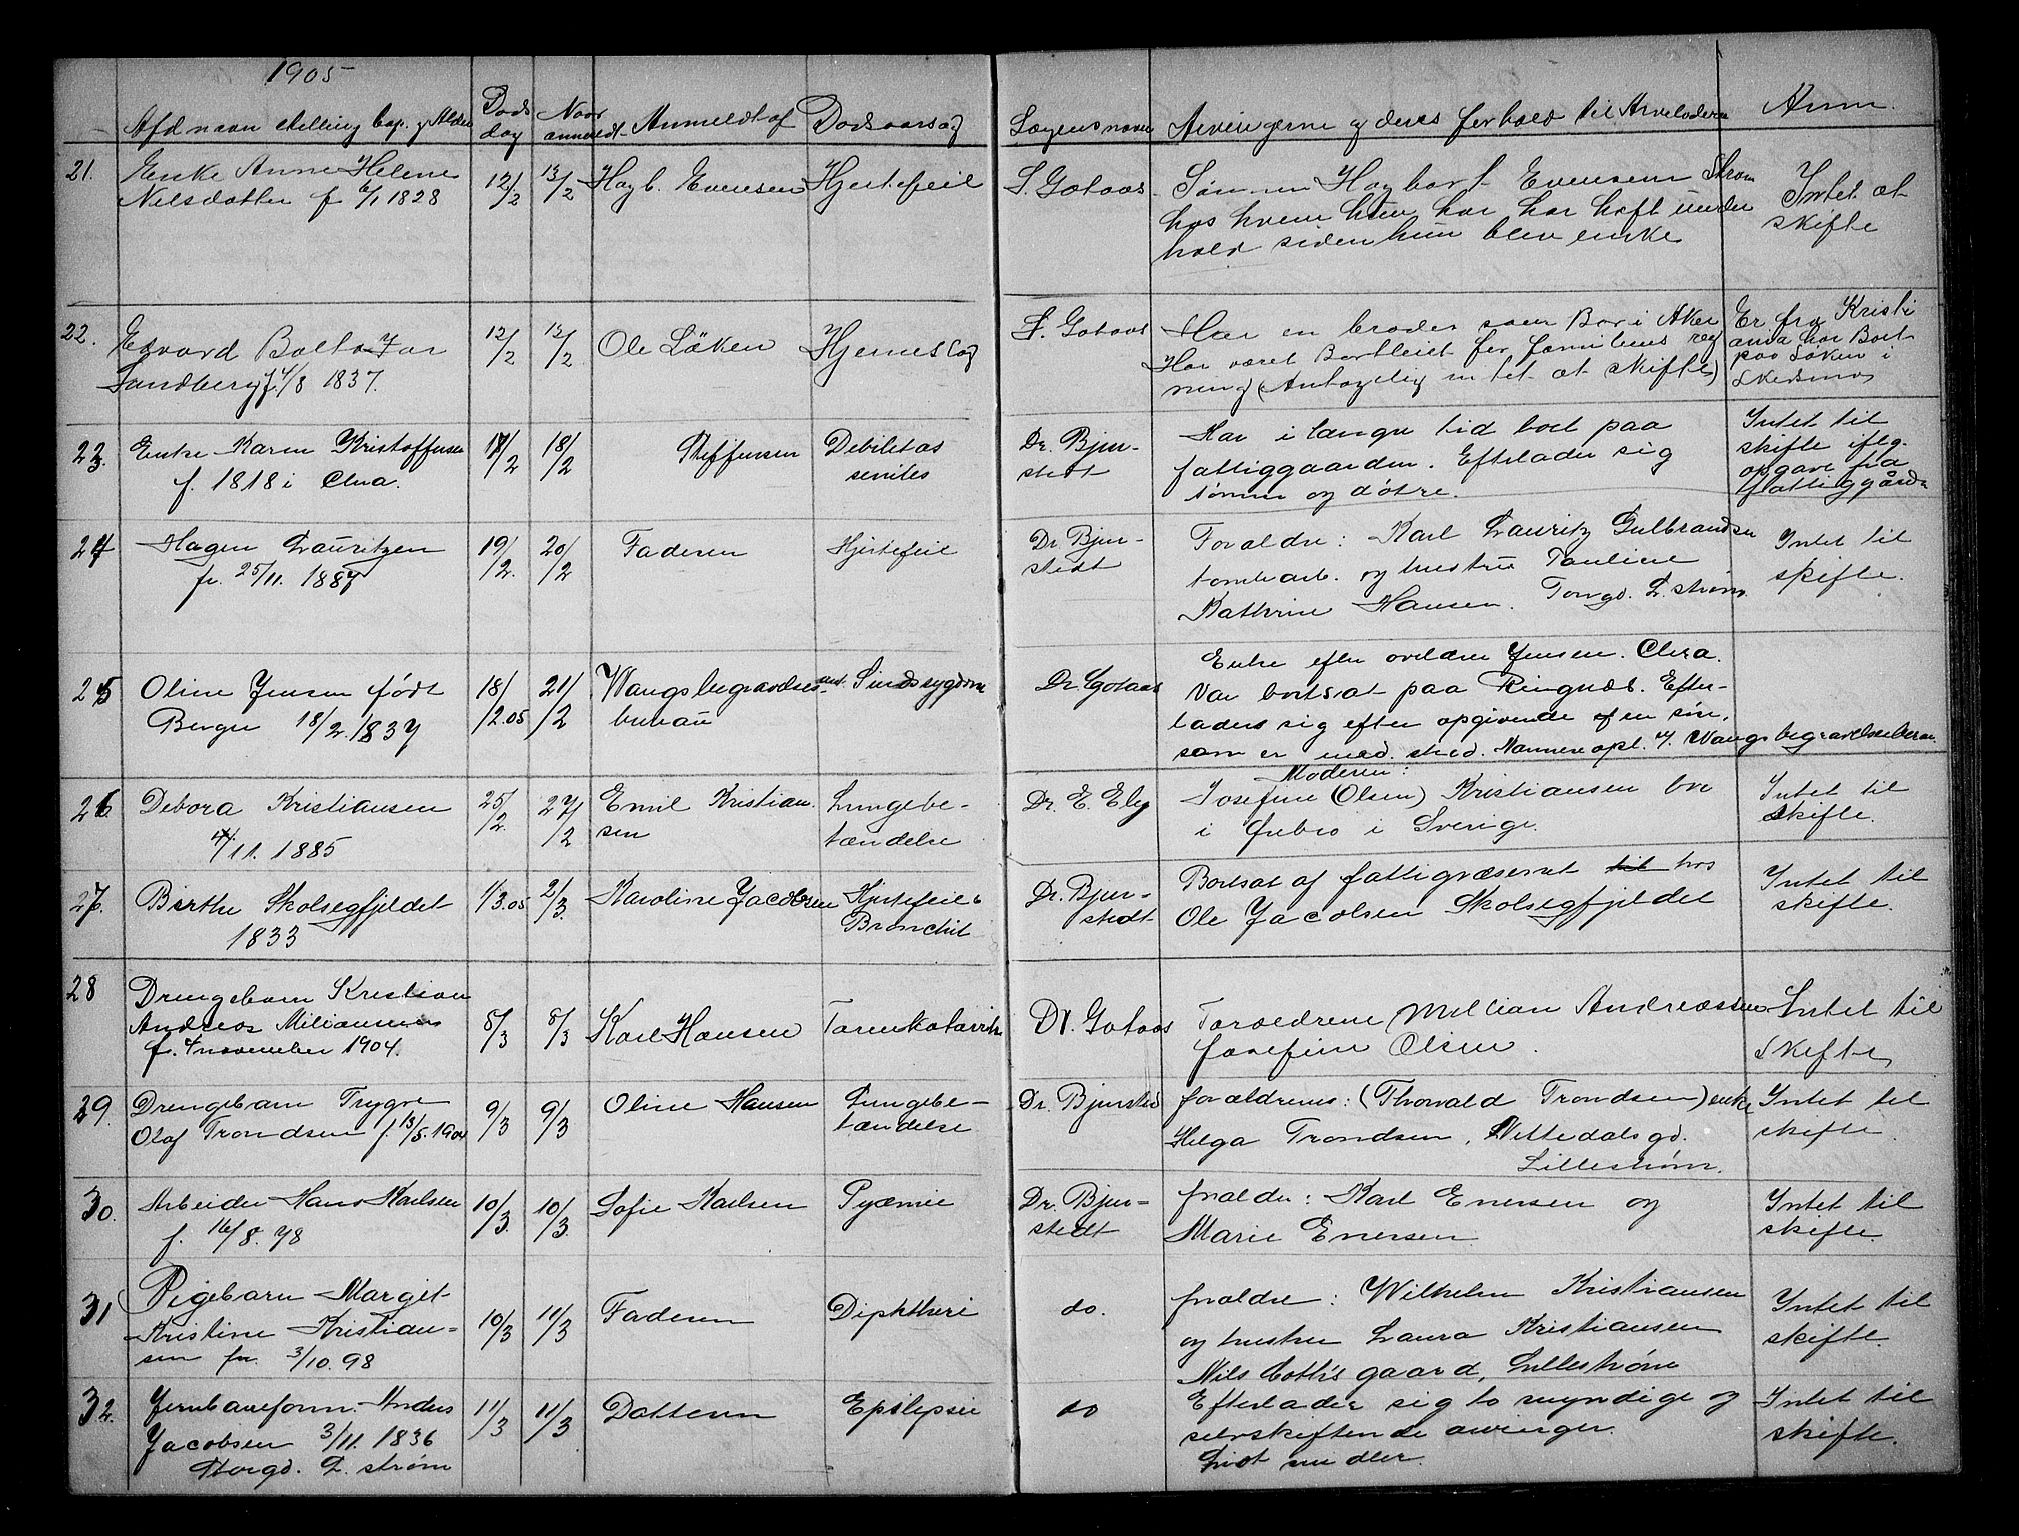 1905
Afd navn stilling bop. og Alder
Døds dag
Naar anmeldt
Anmeldt af
Dødsaarsag
Lægens navn
Arvingerne og deres forhold til Arveladeren
Anm.
21.
Enke Anne Helene
Nilsdatter f 6/1 1828
12/2
13/2
Hagb. Evensen
Hjertefeil
S. Gotaas
Sønnen Hagbart Evensen Strøm
hos hvem hun har har haft under
hold siden hun blev enke
Intet at
skifte
22.
Edvard Bolt
Sandberg f. 4/8 1837.
12/2
12/2
Ole Løken
Hjerneslag
S. Gotaas
Har en broder som Bor i Aker
Har været Bortleiet for familiens reg
ning (Antagelig intet at skifte)
Er fra Kristi
ania har Boet
paa Løken i
Skedsmo
23.
Enke Karen Kristoffersen
f. 1818 i
17/2
18/2
Steffensen
Debilitas
senites
Dr. Bjer-
stedt
Har i længre tid boet paa
fattiggaarden. Efterlader sig
sønner og døtre.
Intet til
skifte iflg.
opgave fra
fattiggård
24
Hagen Lauritzen
f. 25/11. 1887
19/2.
20/2
Faderen
Hjertefeil
Dr. Bjer-
stedt
Foraldre: Karl Lauritz Gulbrandsen
tomtearb. og hustru Pauline
Kathrine Hansen. Torvgd. L. strøm.
Intet til
skifte.
25
Oline Jensen født
Berger 18/2. 1837
18/2.05
21/2
Wangs begravelses-
bureau
Sindssygdom
Dr Gotaas
Enke efter Jensen.
Var bortsat paa Ringnæs. Efter-
lader sig efter opgivende en søn,
som er Wangs begravelsesbureau
26
Debora Kristiansen
/11. 1885
25/2.
27/2
Emil Kristian
sen
Lungebe-
tændelse
Dr. E. Eby
Moderen:
Josefine (Olsen) Kristiansen bor
i Ørebro i Sverige.
Intet til
skifte.
27.
Birthe Skolsegfjeldet
1833
1/3.05
2/3.
Karoline Jacobsen
Hjertefeil &
Bronchit
Dr. Bjer-
stedt
Bortsat af fattigvæsenet til hos
Ole Jacobsen Skolsegfjeldet
Intet til
skifte.
28
Drengebarn Kristian
Andreas Miliansen
f. 4 november 1904.
8/3
8/3
Karl Hansen
Tarmkatarrh
Dr. Gotaas
Foraeldrene Millian Andreassen
Josefine Olsen.
Intet til
Skifte
29.
Drengebarn Trygve
Olaf Trondsen f. 13/5. 1904
9/3
9/3
Oline Hansen
Lungebe-
tændelse
Dr. Bjersted
forældrene: (Thorvald Trondsen) enke
Helga Trondsen, Nittedalsgd.
Lillestrøm.
Intet til
skifte.
30.
Arbeider Hans Karlsen
f. 16/8. 78
10/3.
10/3.
Sofie Karlsen
Pyæmie
Dr. Bjer-
stedt
foraldre: Karl Enersen og
Marie Enersen
Intet til
skifte.
31
Pigebarn Margit
Kristine Kristian-
sen f. 3/10. 98
10/3
11/3
Faderen
Diphtheri
do.
foraldre: Wilhelm Kristiansen
og hustru Laura Kristiansen
Nils gaard, Lillestrøm
Intet til
skifte.
32.
Jernbaneform. Anders
Jacobsen 3/11. 1836
Storgd. L. strøm
11/3
11/3
Datteren
Epilepsie
do
Efterlader sig to myndige og
selvskiftende arvinger.
Intet til
skifte.